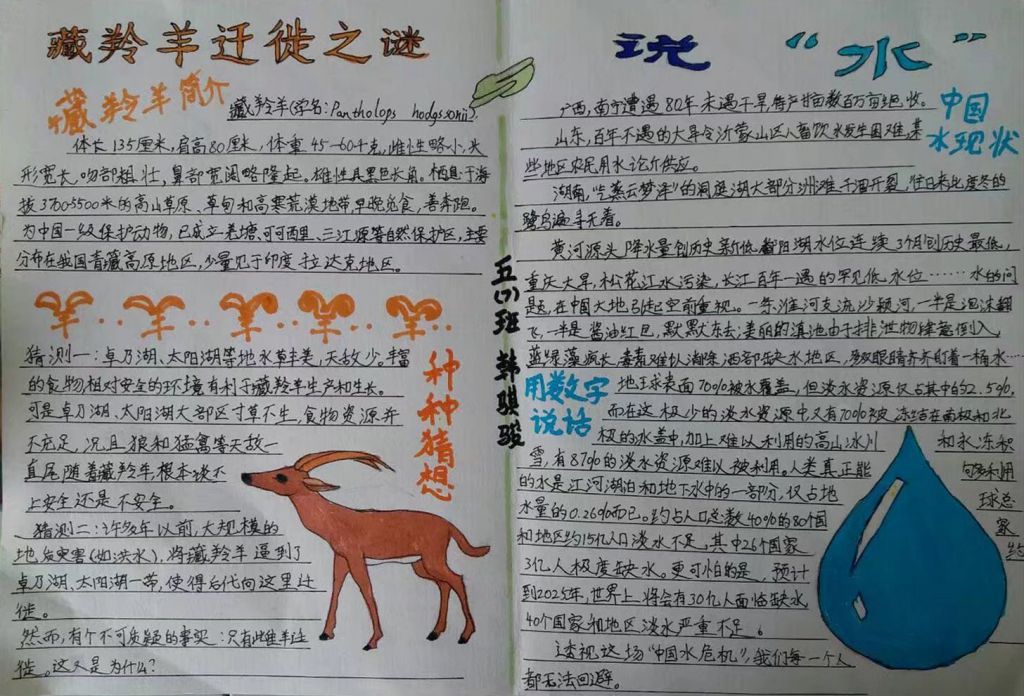 藏羚羊迁徙之谜
藏羚羊简介
藏羚羊(学名:Pantholops hodgsonii),
体长135厘米,肩高80厘米,体重45-60千克,雌性略小,头
形宽长,吻部粗壮,鼻部宽阔略隆起。雄性具黑色长角。栖息于海
拔3700-5500米的高山草原、草甸和高寒荒漠地带,早晚觅食,善奔跑。
为中国一级保护动物,已成立羌塘、可可西里、三江源等自然保护区,主要
分布在我国青藏高原地区,少量见于印度拉达克地区。
种种猜想
猜测一:卓乃湖、太阳湖等地水草丰美,天敌少。丰富
的食物相对安全的环境有利于藏羚羊生产和生长。
可是卓乃湖、太阳湖大部区寸草不生,食物资源并
不充足,况且狼和猛禽等天敌一
直尾随着藏羚羊根本谈不
上安全还是不安全。
猜测二:许多年以前,大规模的
地发灾害(如洪水),将藏羚羊逼到了
卓乃湖、太阳湖一带,使得后代向这里迁
徙。
然而,有个不可质疑的事实:只有雌羊迁
徙。这又是为什么?
五(7)班 韩骐骏
说“水”
中国
水现状
广西,南宁遭遇80年未遇干旱,特产甘蔗数百万亩绝收。
山东,百年不遇的大旱令沂蒙山区人畜饮水发生困难,某
些地区农民用水论斤供应。
湖南,“气蒸云梦泽”的洞庭湖大部分洲滩干涸开裂,往日来此度冬的
鹭鸟遍寻无着。
黄河源头降水量创历史新低,鄱阳湖水位连续3个月创历史最低,
重庆大旱,松花江水污染,长江百年一遇的罕见低水位……水的问
题,在中国大地引起空前重视。一条淮河支流沙颍河,一半是泡沫翻
飞,一半是酱油红色,默默东去;美丽的滇池由于排泄物肆意倒入,
蓝绿藻疯长,毒素难以消除西部缺水地区,多双眼睛齐齐盯着一桶水…
用数字
说话
地球表面70%被水覆盖,但淡水资源仅占其中的2.5%,
而在这极少的淡水资源中,又有70%被冻结在南极和北
极的冰盖中,加上难以利用的高山冰川和永冻积
雪,有87%的淡水资源难以被利用。人类真正能够利用
的水是江河湖泊和地下水中的一部分,仅占地球总
水量的0.26%而已。约占人口总数40%的80个国家
和地区约15亿人口淡水不足,其中26个国家约
3亿人极度缺水。更可怕的是,预计
到2025年,世界上将会有30亿人面临缺水
40个国家和地区淡水严重不足。
透视这场“中国水危机”,我们每一个人
都无法回避。